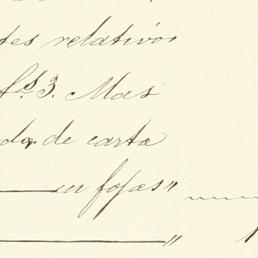 tes relativos
fs 3. Mas
do, de carta
en fojas"
"